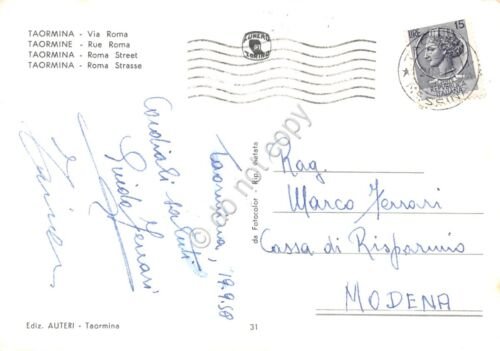 TAORMINA - Via Roma
TAORMINE - Rue Roma
TAORMINA - Roma Street
TAORMINA - Roma Strasse
LIRE 15
Taormina, 19.9.58
Cordiali saluti
Guido Ferrari
da Fotocolor - Rip. vietata
Rag.
Marco Ferrari
Cassa di Risparmio
MODENA
Ediz. AUTERI - Taormina
31
do not copy